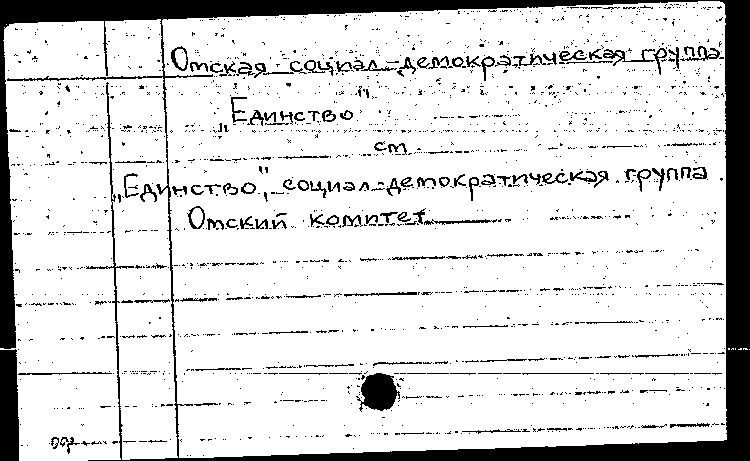 Омская социал-демократическая группа
„Единство"
см
„Единство", социал-демократическая группа.
Омский комитет